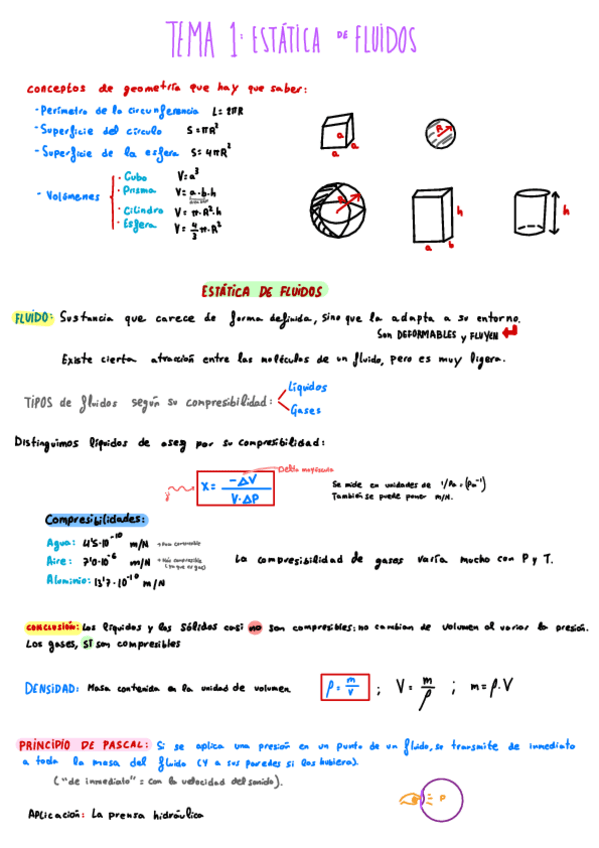 TEMA 1: ESTÁTICA DE FLUIDOS
conceptos de geometría que hay que saber:
- Perímetro de la circunferencia L = 2πR
- Superficie del círculo S = πR²
- Superficie de la esfera S = 4πR²
- Volúmenes
· Cubo V = a³
· Prisma V = a·b·h
· Cilindro V = π·R²·h
· Esfera V = 4/3 π·R²
a
a
a
R
R
h
a
b
h
ESTÁTICA DE FLUIDOS
FLUIDO: Sustancia que carece de forma definida, sino que la adapta a su entorno.
Son DEFORMABLES y FLUYEN
Existe cierta atracción entre las moléculas de un fluido, pero es muy ligera.
TIPOS de fluidos según su compresibilidad:
Líquidos
Gases
Distinguimos líquidos de por su compresibilidad:
Delta mayúscula
x = -ΔV / V·ΔP
Se mide en unidades de 1/Pa = (Pa⁻¹)
También se puede poner m/N.
Compresibilidades:
Agua: 4'5·10⁻¹⁰ m/N
Aire: 7'0·10⁻⁶ m/N
Aluminio: 13'7·10⁻¹⁰ m/N
La compresibilidad de gases varía mucho con P y T.
CONCLUSIÓN: Los líquidos y los sólidos casi no son compresibles: no cambian de volumen al variar la presión.
Los gases, sí son compresibles
DENSIDAD: Masa contenida en la unidad de volumen ρ = m/V ; V = m/ρ ; m = ρ·V
PRINCIPIO DE PASCAL: Si se aplica una presión en un punto de un fluido, se transmite de inmediato
a toda la masa del fluido (y a sus paredes si las hubiera).
("de inmediato" = con la velocidad del sonido).
P
Aplicación: La prensa hidráulica